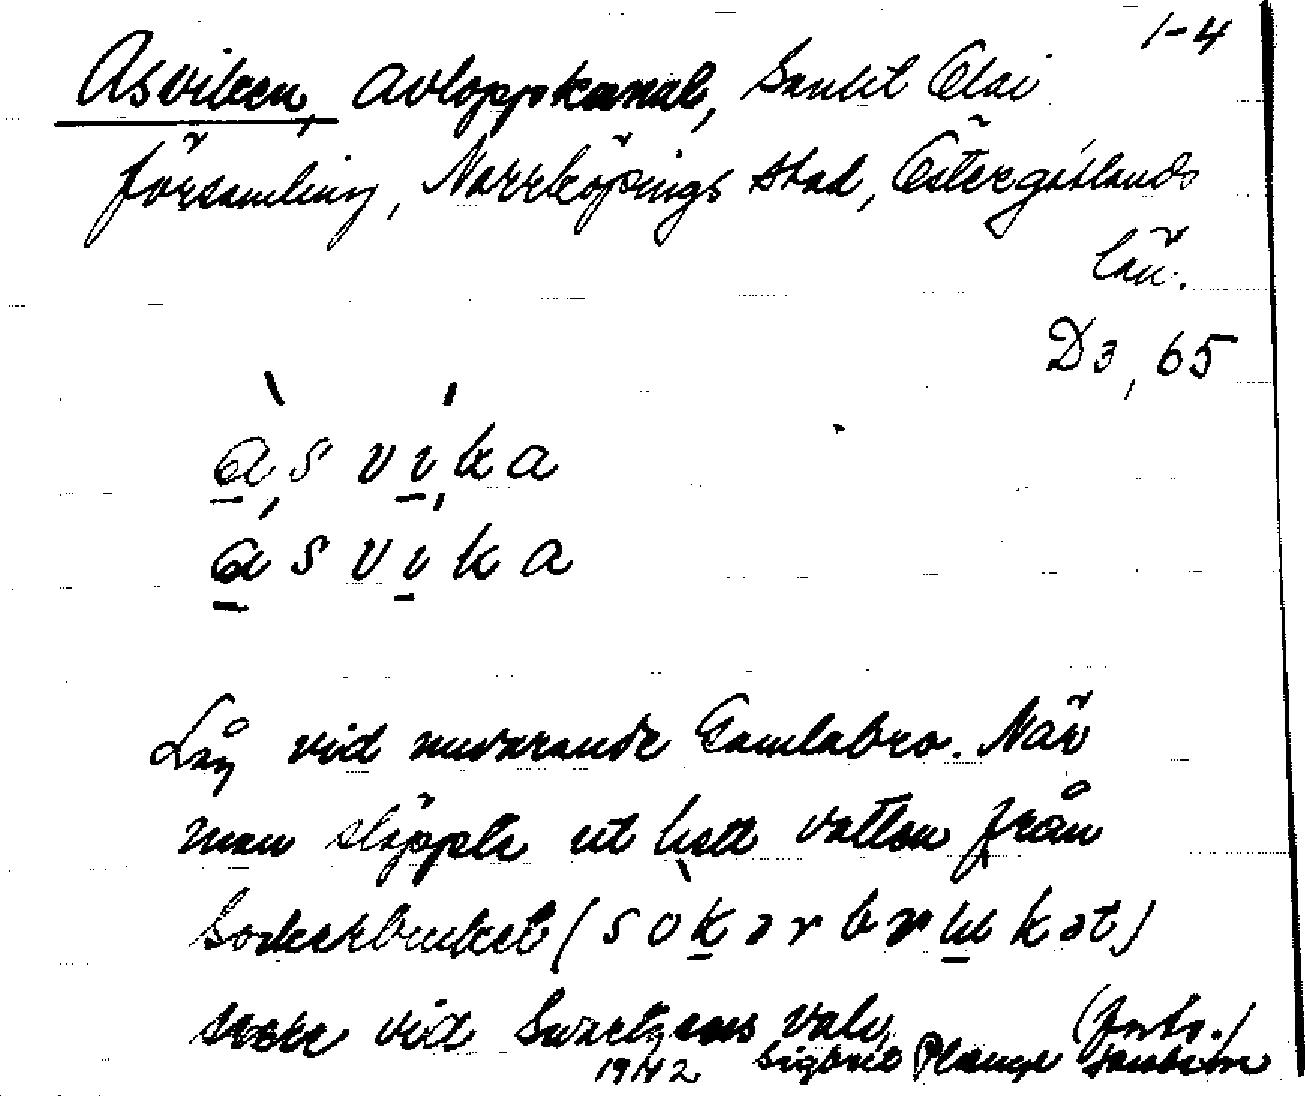 1-4
Asviken, avloppskanal, Sankt Olai
församling, Norrköpings stad, Östergötlands
län.
D3, 65
asvika
asvika
Låg vid nuvarande Gamlabro. När
man släppte ut hett vatten från
Sockerbruket (sokərbrukət)
vid Swartzens valv (forts.)
1942 Sigbrit Plænge Jacobson